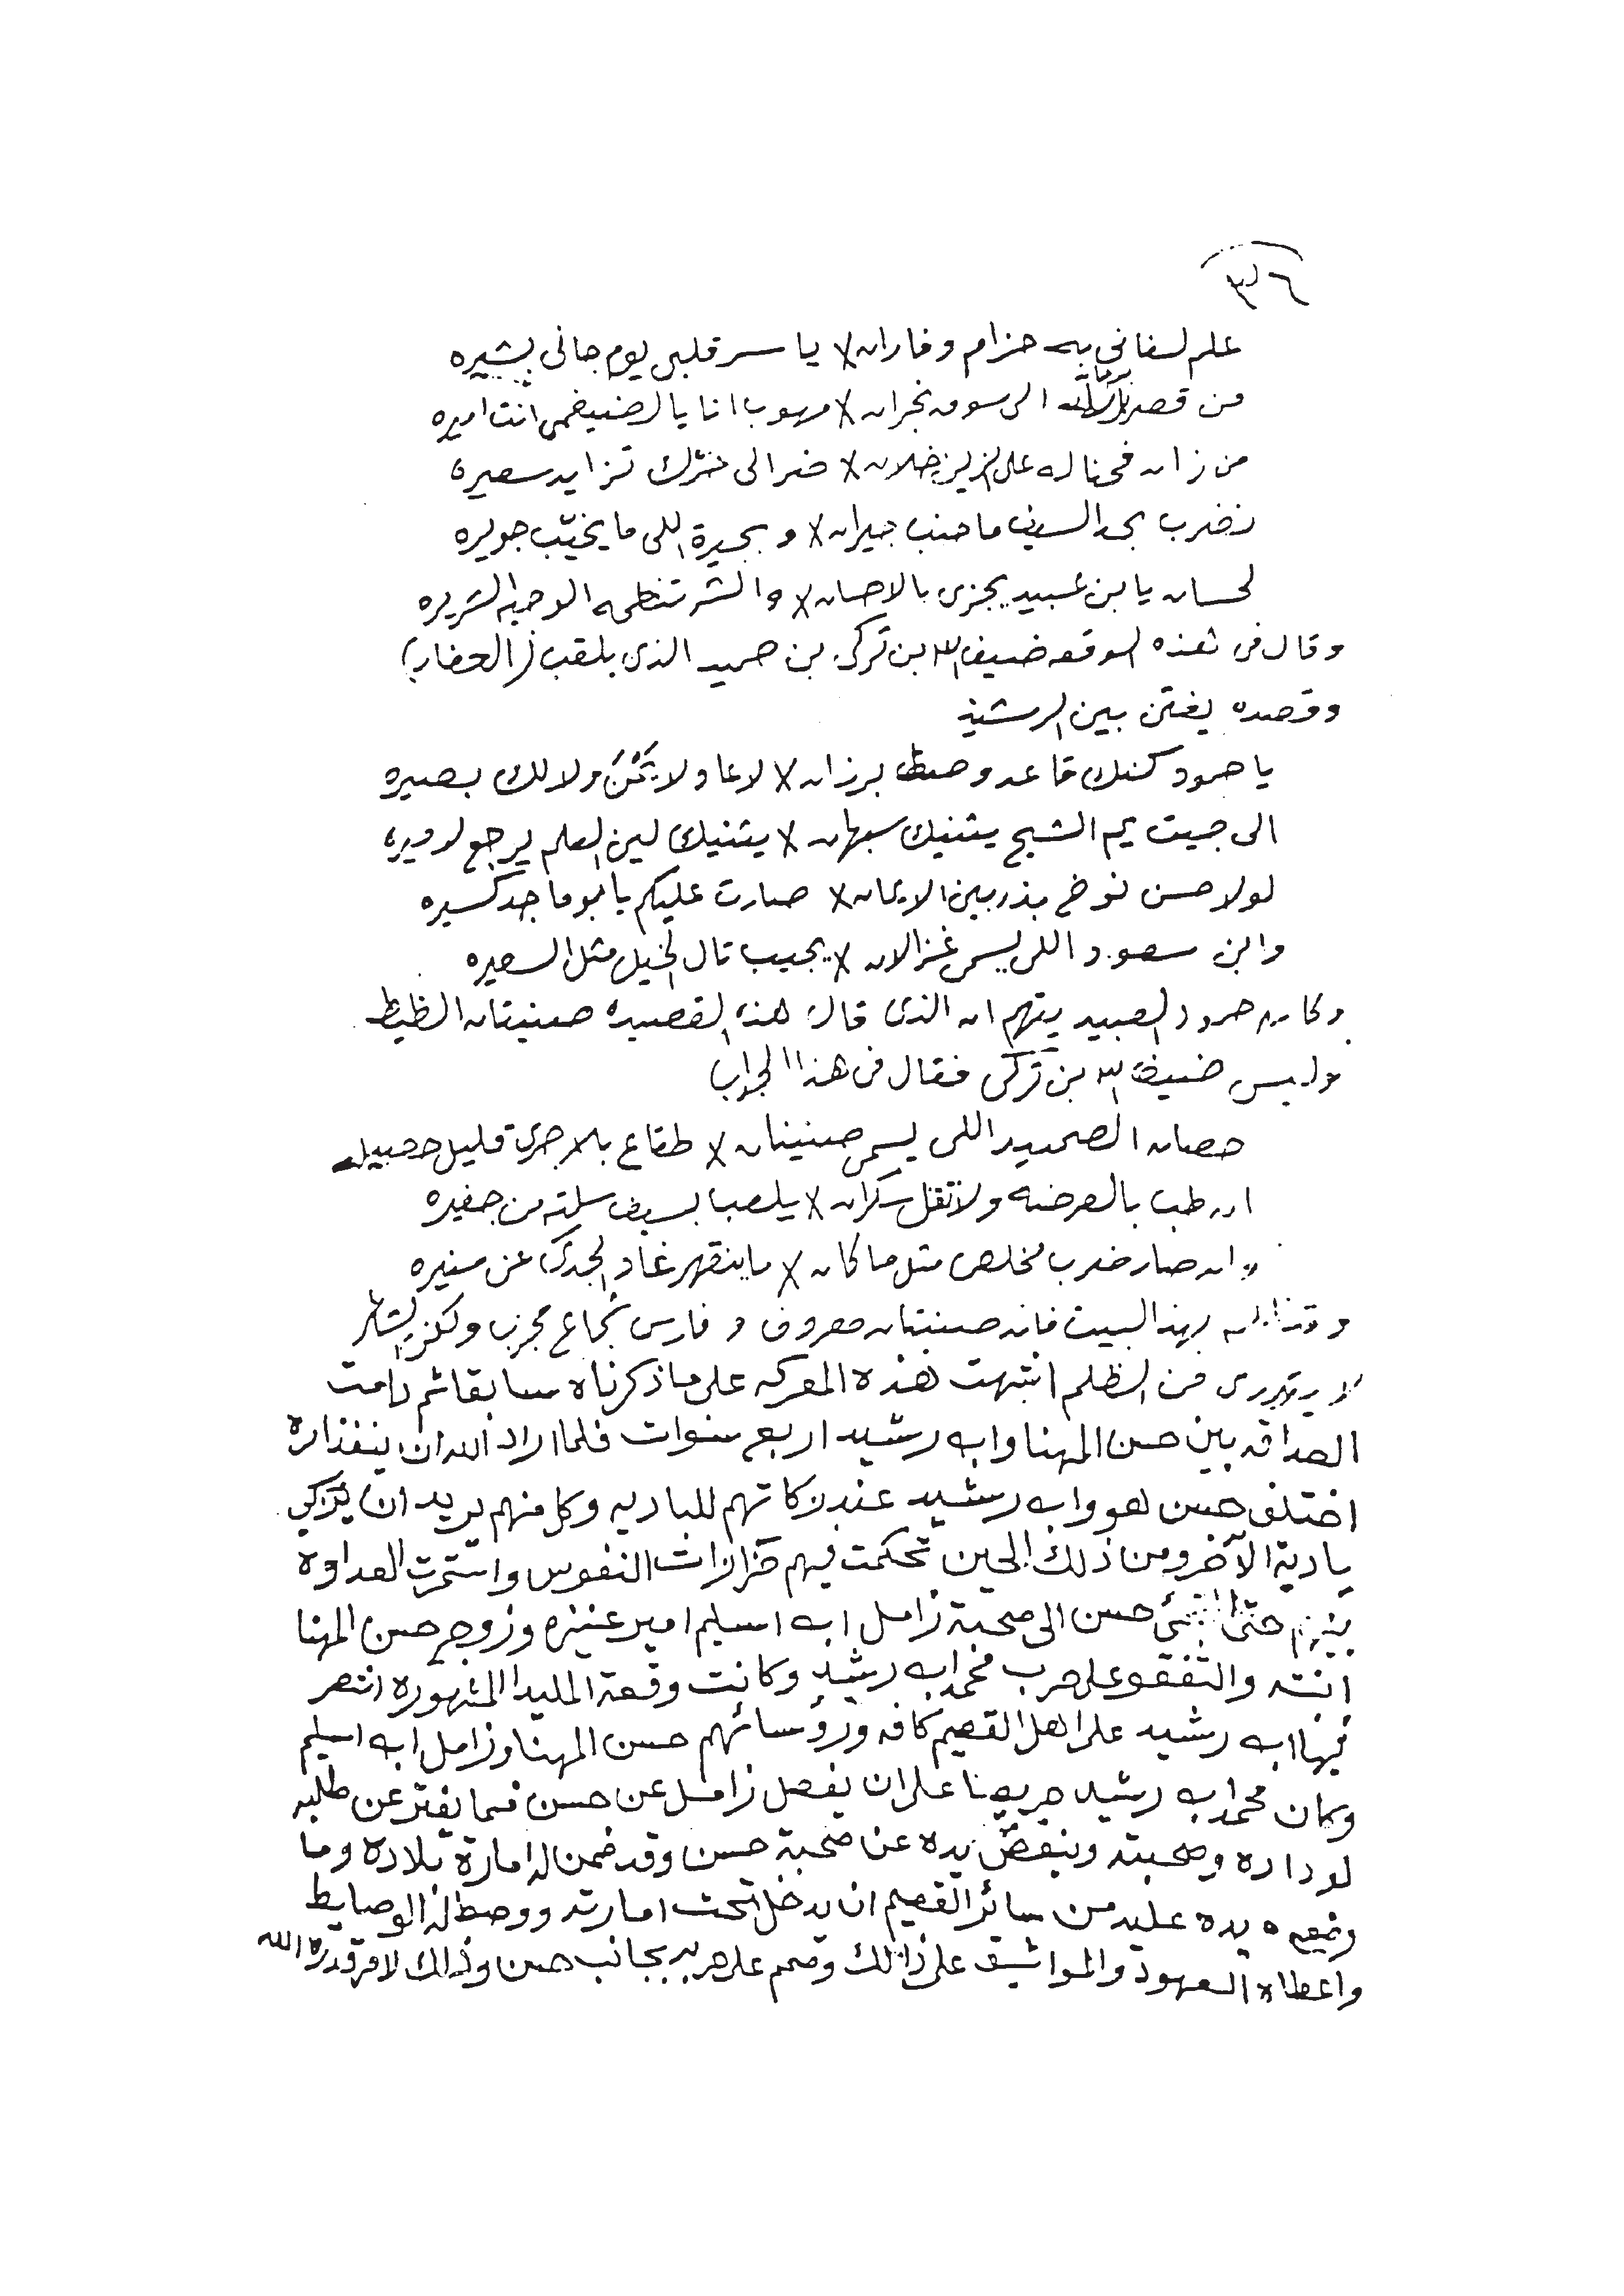 ٣٦
علم لفاني به حزام وفاران × يا سر قلبي يوم جاني بشيره
من قصر الى سوق نجران × مهوب انا يا الضيغمي انت اميره
من زان فحنا له على الزين خلان × ضرالى ضرك تزايد سعيره
نضرب بحد السيف ما حنب جيران × و بجيرة اللي ما يخيّب جويره
لحسان يا بن عبيد يجزى بالاحسان × والشر تنطحه الوجيه الشريره
وقال في هذه الوقعه ضيف الله بن تركي بن حميد الذي يلقب (العفار)
وقصده يفتن بين الرشيد
يا حمود كنك قاعد وصط برزان × لاعاد لا ولا لك بصيره
الى جيت يم الشيخ يثنيك سبهان × يثنيك لين العلم يرجع لاميره
لولا حسن نوخ بذربين الايمان × صارت عليكم يا ابو ماجد كسيره
وابن سعود اللي يسمى غزالان × يجيب تال الخيل مثل السعيره
وكان حمود العبيد يتهم ان الذي قال هذه القصيده صنيتان الظيط
وليس ضيف الله بن تركي فقال في هذا الجواب
حصان الصميد اللي يسمى صنيتان × طقاع بالاجرى قليل
ان طب بالعرضه ولا تقل سكران × يلعب بسيف سلته من جفيره
وان صار ضرب مخلص مثل ما كان × ما ينقهر غاد الجدي عن منيره
بهذا البيت فان صنيتان معروف وفارس شجاع مجرب ولكن الشاعر
لا يتورى من الظلم انتهت هذه المعركه على ما ذكرناه سابقا ثم دامت
الصداقه بين حسن المهنا وابن رشيد اربع سنوات فلما اراد الله ان ينفذ اره
اختلف حسن هو وابن رشيد عند زكاتهم للباديه وكل منهم يريد ان يزكي
بادية الآخر ومن ذلك الحين تحكمت فيهم حزازات النفوس واستمرت العداوه
بينهم حتى حسن الى صحبة زامل ابن اسليم امير عنيزه وزوجه حسن المهنا
ابنته والتفقو على حرب محمد ابن رشيد وكانت وقعة المليدا المشهوره انتصر
فيها ابن رشيد على اهل القصيم كافه ورؤسائهم حسن المهنا وزامل ابن اسليم
وكان محمد ابن رشيد حريصا على ان يفصل زامل عن حسن فما يفتر عن طلبه
لوداده وصحبته وينفض يده عن صحبة حسن وقد ضمن له امارة بلاده وما
وضع يده عليه من سائر القصيم ان يدخل تحت امارته ووصط له الوصايط
واعطاه العهود والمواثيق على ذالك وصمم على حربه بجانب حسن وذالك لامر قدره الله